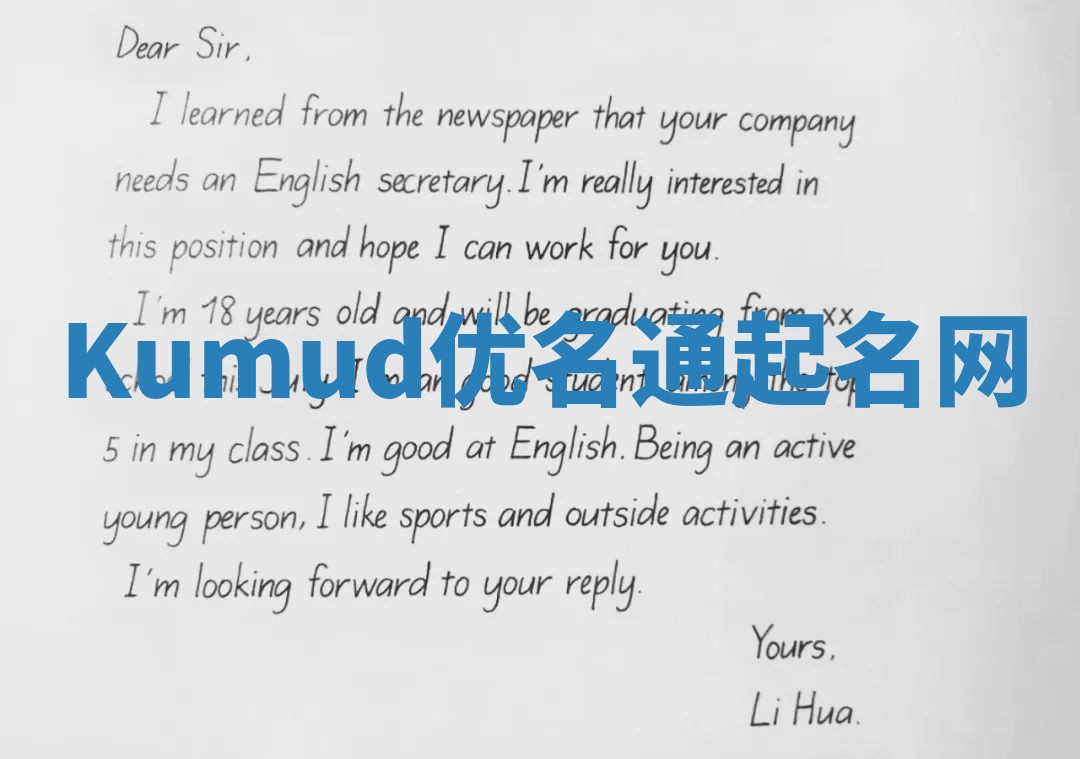 Dear Sir,
I learned from the newspaper that your company
needs an English secretary. I'm really interested in
this position and hope I can work for you.
I'm 18 years old and will be graduating from xx
Kumud优名通起名网
this July. I am good student among the top
5 in my class. I'm good at English. Being an active
young person, I like sports and outside activities.
I'm looking forward to your reply.
Yours,
Li Hua.